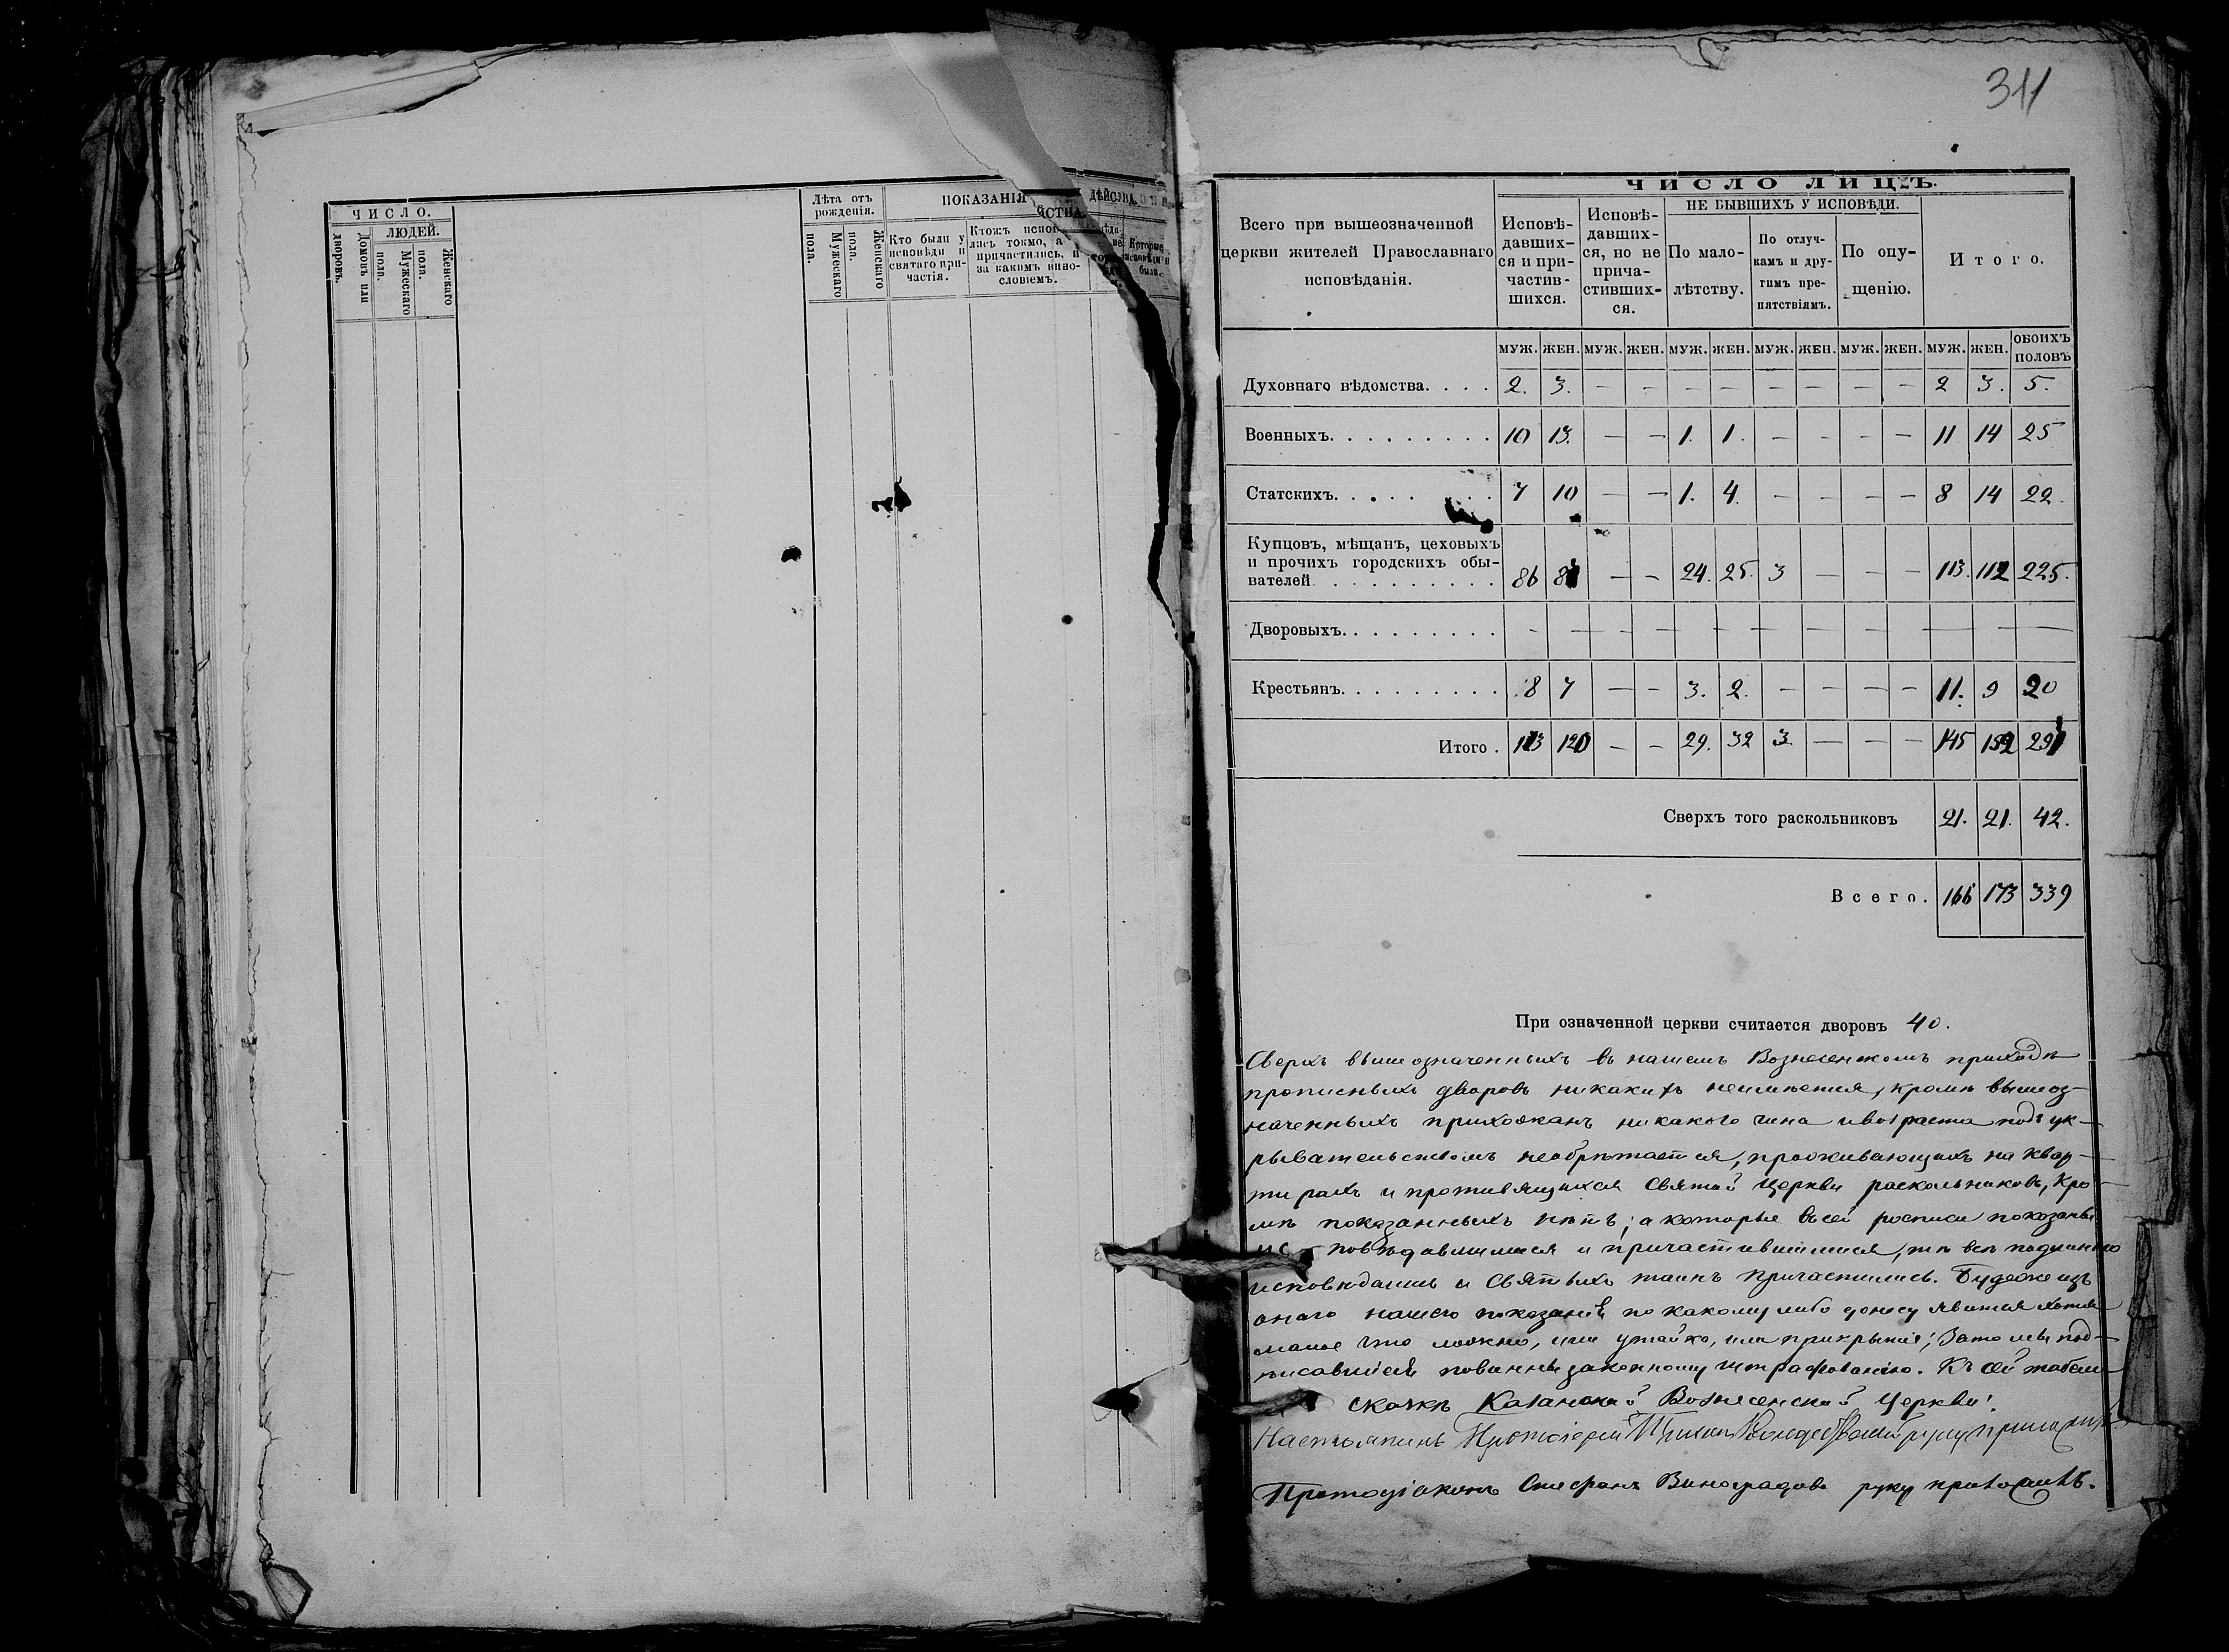 ЧИСЛО.
ЛЮДЕЙ.
Домовъ или дворовъ.
Мужескаго пола.
Женскаго пола.
Лѣта отъ рожденія.
Мужескаго пола.
Женскаго пола.
ПОКАЗАНІЯ
ДѢЙСТВА
Кто были у исповѣди и святаго причастія.
лись токмо, а
причастились, и
за какимъ вино-
словіемъ.
311
ЧИСЛО ЛИЦЪ.
Всего при вышеозначенной церкви жителей Православнаго исповѣданія.
Исповѣ-давших-ся и при-частив-шихся.
Исповѣ-давших-ся, но не прича-стивших-ся.
НЕ БЫВШИХЪ У ИСПОВѢДИ.
По мало-лѣтству.
По отлуч-камъ и дру-гимъ пре-пятствіямъ.
По опу-щенію.
Итого.
МУЖ. ЖЕН. МУЖ. ЖЕН. МУЖ. ЖЕН. МУЖ. ЖЕН. МУЖ. ЖЕН. МУЖ. ЖЕН. ОБОИХЪ ПОЛОВЪ
Духовнаго вѣдомства. . . . 2. 3. — — — — — — — — 2 3. 5.
Военныхъ. . . . . . . . . 10 13. — — 1. 1. — — — — 11 14 25
Статскихъ. . . . . . . . 7 10 — — 1. 4. — — — — 8 14 22.
Купцовъ, мѣщанъ, цеховыхъ
и прочихъ городскихъ обы-
вателей . . . . . . . . . 86 — — 24. 25. 3 — — — 113. 112 225.
Дворовыхъ. . . . . . . . . — — — — — — — — — — — — —
Крестьянъ. . . . . . . . . 8 7 — — 3. 2. — — — — 11. 9 20
Итого . 113 120 — — 29. 32 3. — — — 145 152 297
Сверхъ того раскольниковъ 21. 21. 42.
Всего. 166 173 339
При означенной церкви считается дворовъ 40.
Сверхъ вышеозначенныхъ въ нашемъ Вознесенскомъ приходѣ
прописныхъ дворовъ никакихъ неимѣется, кромѣ вышеоз-
наченныхъ прихожанъ никакого чина и возраста подъ ук-
рывательствомъ необрѣтается, проживающихъ на квар-
тирахъ и противящихся Святой Церкви раскольниковъ, кро-
мѣ показанныхъ нѣтъ; а которые въ сей росписи показаны
исповѣдавшимися и причастившимися, тѣ всѣ подлинно
исповѣдались и Святыхъ таинъ причастились. Будеже изъ
онаго нашего показанія по какому либо доносу явится хотя
малое что ложно, или утайка, или прикрытіе; за то мы под-
писавшіеся повинны законному штрафованію. Къ сей табели
скаскѣ Казанской Вознесенской Церкви:
Настоятель Протоіерей руку приложилъ.
Протодіаконъ Стефанъ Виноградовъ руку приложилъ.